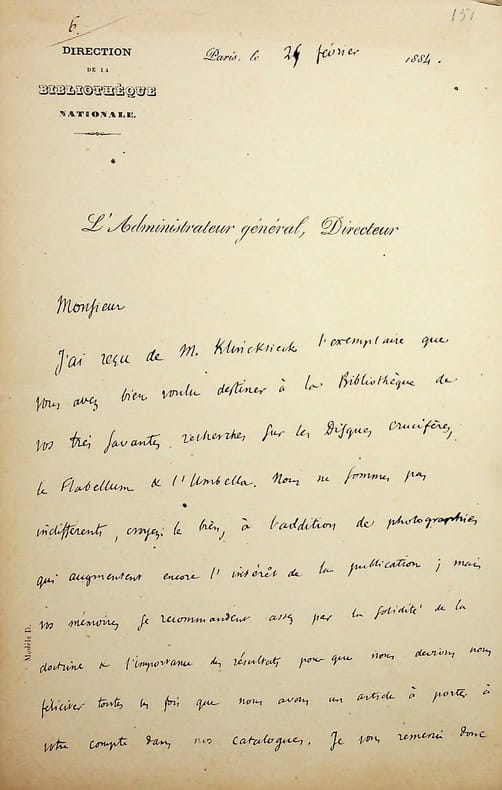 6.
151
DIRECTION
DE LA
BIBLIOTHÈQUE
NATIONALE.
Paris, le février 1884.
L'Administrateur général, Directeur
Monsieur
J'ai reçu de M. Klincksieck l'exemplaire que
vous avez bien voulu destiner à la Bibliothèque de
vos très savantes recherches sur les Disques crucifères,
le Flabellum & l'Umbella. Nous ne sommes pas
indifférents, croyez le bien, à l'addition de photographies
qui augmentent encore l'intérêt de la publication ; mais
vos mémoires se recommandent assez par la solidité de la
doctrine & l'importance des résultats pour que nous devions nous
féliciter toutes les fois que nous avons un article à porter à
votre compte dans nos catalogues. Je vous remercie donc
Modèle D.